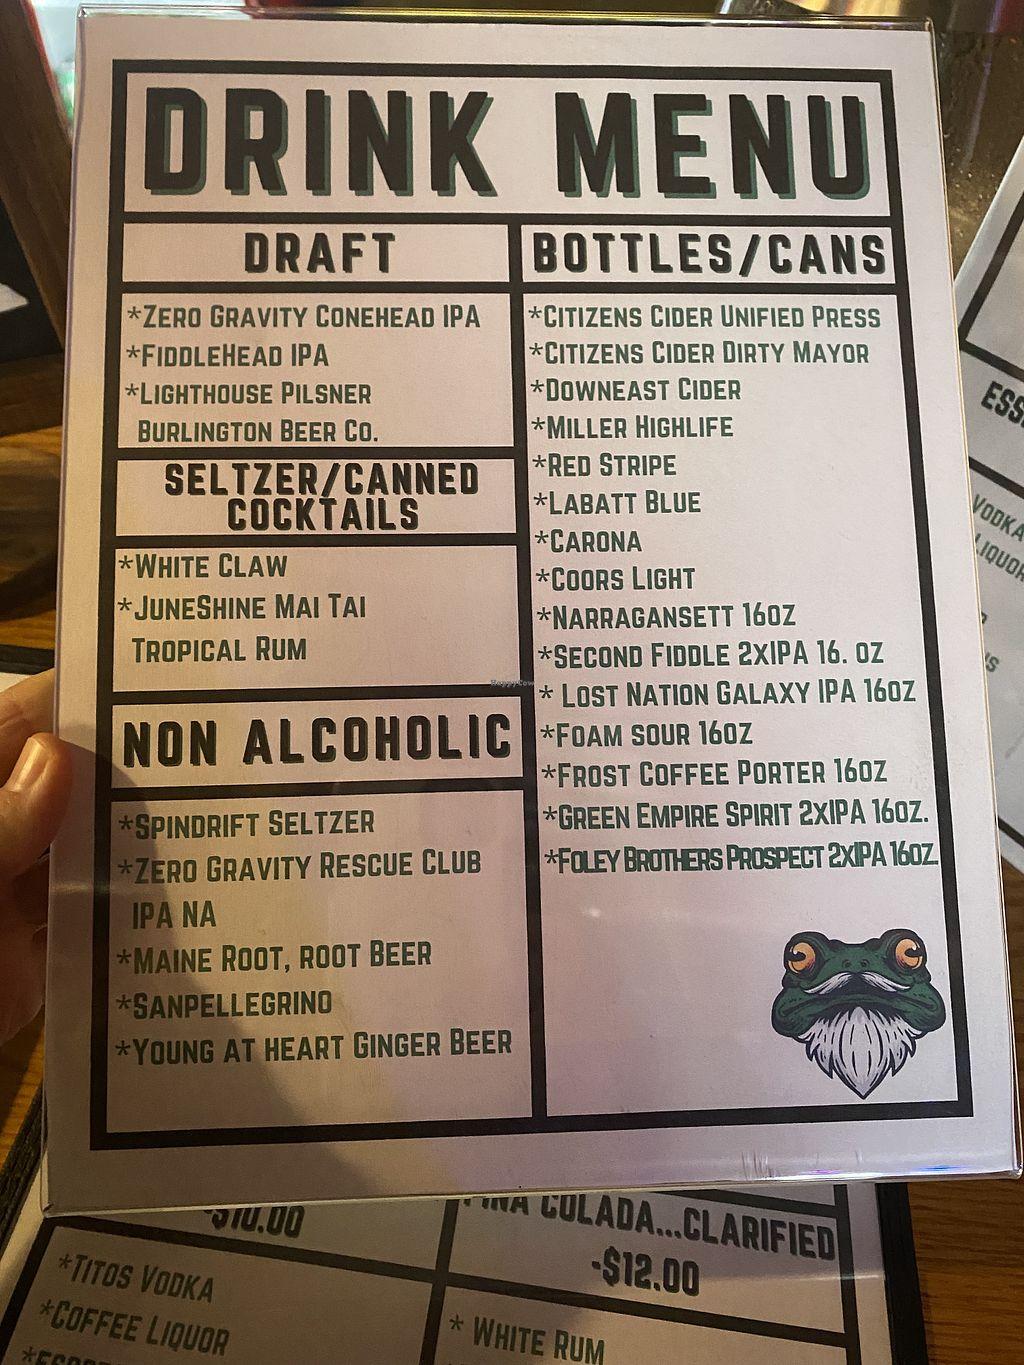 DRINK MENU
DRAFT
*Zero Gravity Conehead IPA
*FiddleHead IPA
*Lighthouse Pilsner
Burlington Beer Co.
SELTZER/CANNED
COCKTAILS
*White Claw
*JuneShine Mai Tai
Tropical Rum
NON ALCOHOLIC
*Spindrift Seltzer
*Zero Gravity Rescue Club
IPA NA
*Maine Root, root Beer
*Sanpellegrino
*Young at heart Ginger Beer
BOTTLES/CANS
*Citizens Cider Unified Press
*Citizens Cider Dirty Mayor
*Downeast Cider
*Miller Highlife
*Red Stripe
*Labatt Blue
*Carona
*Coors Light
*Narragansett 16oz
*Second Fiddle 2xIPA 16. oz
* Lost Nation Galaxy IPA 16oz
*Foam sour 16oz
*Frost Coffee Porter 16oz
*Green Empire Spirit 2xIPA 16oz.
*Foley Brothers Prospect 2xIPA 16oz.
HappyCow
-$10.00
*Titos Vodka
*Coffee Liquor
PINA COLADA...CLARIFIED
-$12.00
* White Rum
Vodka